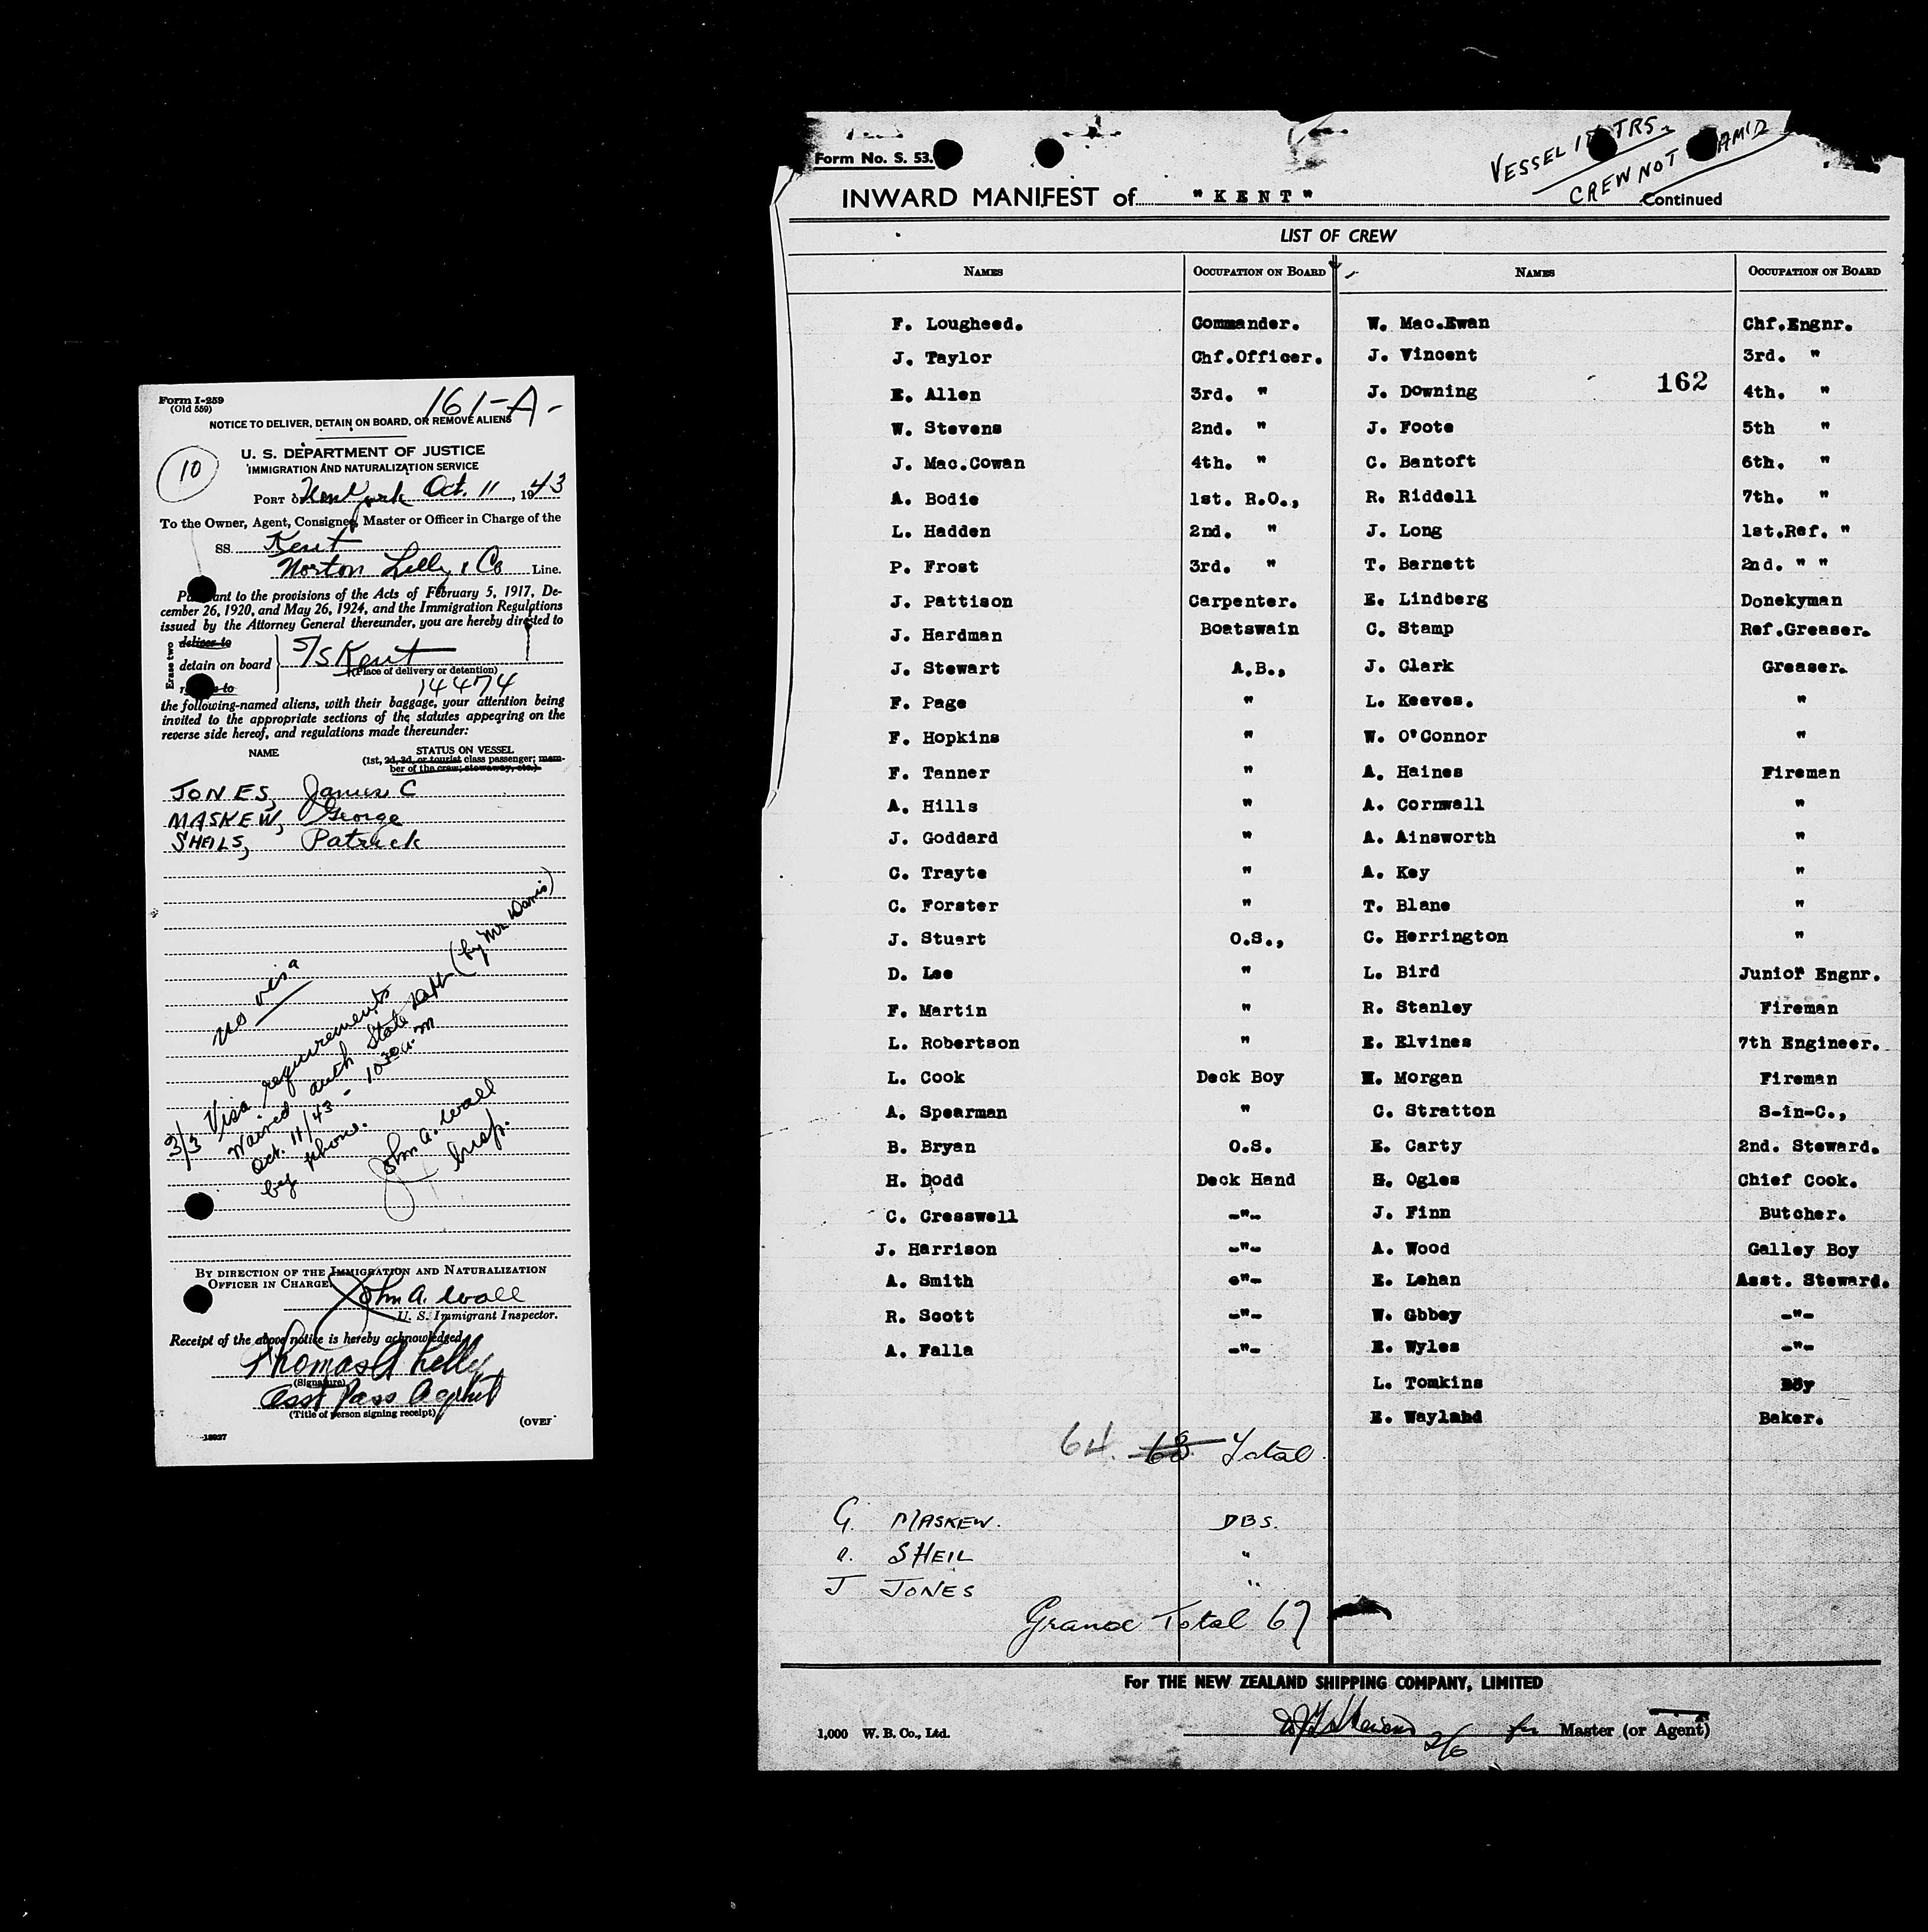 Form I-259
(Old 559)
161-A-
NOTICE TO DELIVER, DETAIN ON BOARD, OR REMOVE ALIENS
10
U. S. DEPARTMENT OF JUSTICE
IMMIGRATION AND NATURALIZATION SERVICE
PORT OF New York Oct. 11, 1943
To the Owner, Agent, Consignee, Master or Officer in Charge of the
SS. Kent
Norton Lilly & Co Line.
Pursuant to the provisions of the Acts of February 5, 1917, De-
cember 26, 1920, and May 26, 1924, and the Immigration Regulations
issued by the Attorney General thereunder, you are hereby directed to
Erase two
deliver to
detain on board
S/S Kent
(Place of delivery or detention)
14474
the following-named aliens, with their baggage, your attention being
invited to the appropriate sections of the statutes appearing on the
reverse side hereof, and regulations made thereunder:
NAME
STATUS ON VESSEL
(1st, 2d, 3d, or tourist class passenger; mem-
ber of the crew; stowaway, etc.)
JONES, James C
MASKEW, George
SHEILS, Patrick
no visa
3/3 Visa requirements
Waived auth State Dept (by Mr. Davis)
Oct. 11/43 - 10 30 a.m
by phone.
John A. Wall
Insp.
BY DIRECTION OF THE IMMIGRATION AND NATURALIZATION
OFFICER IN CHARGE.
John A. Wall
U. S. Immigrant Inspector.
Receipt of the above notice is hereby acknowledged
Thomas A Kelly
(Signature)
Asst Pass Agent
(Title of person signing receipt)
(OVER
Form No. S. 53.
VESSEL IN TRS.
CREW NOT
INWARD MANIFEST of "KENT" Continued
LIST OF CREW
NAMES OCCUPATION ON BOARD NAMES OCCUPATION ON BOARD
F. Lougheed. Commander. W. Mac.Ewan Chf.Engnr.
J. Taylor Chf.Officer. J. Vincent 3rd. "
162
E. Allen 3rd. " J. Downing 4th. "
W. Stevens 2nd. " J. Foote 5th "
J. Mac.Cowan 4th. " C. Bantoft 6th. "
A. Bodie 1st. R.O., R. Riddell 7th. "
L. Hadden 2nd. " J. Long 1st.Ref. "
P. Frost 3rd. " T. Barnett 2nd. " "
J. Pattison Carpenter. E. Lindberg Donekyman
J. Hardman Boatswain C. Stamp Ref.Greaser.
J. Stewart A.B., J. Clark Greaser.
F. Page " L. Keeves. "
F. Hopkins " W. O'Connor "
F. Tanner " A. Haines Fireman
A. Hills " A. Cornwall "
J. Goddard " A. Ainsworth "
C. Trayte " A. Key "
C. Forster " T. Blane "
J. Stuart O.S., C. Herrington "
D. Lee " L. Bird Junior Engnr.
F. Martin " R. Stanley Fireman
L. Robertson " E. Elvines 7th Engineer.
L. Cook Deck Boy H. Morgan Fireman
A. Spearman " C. Stratton S-in-C.,
B. Bryan O.S. E. Carty 2nd. Steward.
H. Dodd Deck Hand H. Ogles Chief Cook.
C. Cresswell -"- J. Finn Butcher.
J. Harrison -"- A. Wood Galley Boy
A. Smith -"- E. Lehan Asst. Steward.
R. Scott -"- W. Gbbey -"-
A. Falla -"- E. Wyles -"-
L. Tomkins Boy
E. Wayland Baker.
64. 68 Total.
G. MASKEW. DBS.
SHEIL "
J JONES "
Grand Total 67
For THE NEW ZEALAND SHIPPING COMPANY, LIMITED
1,000 W. B. Co., Ltd.
2/6 for Master (or Agent)